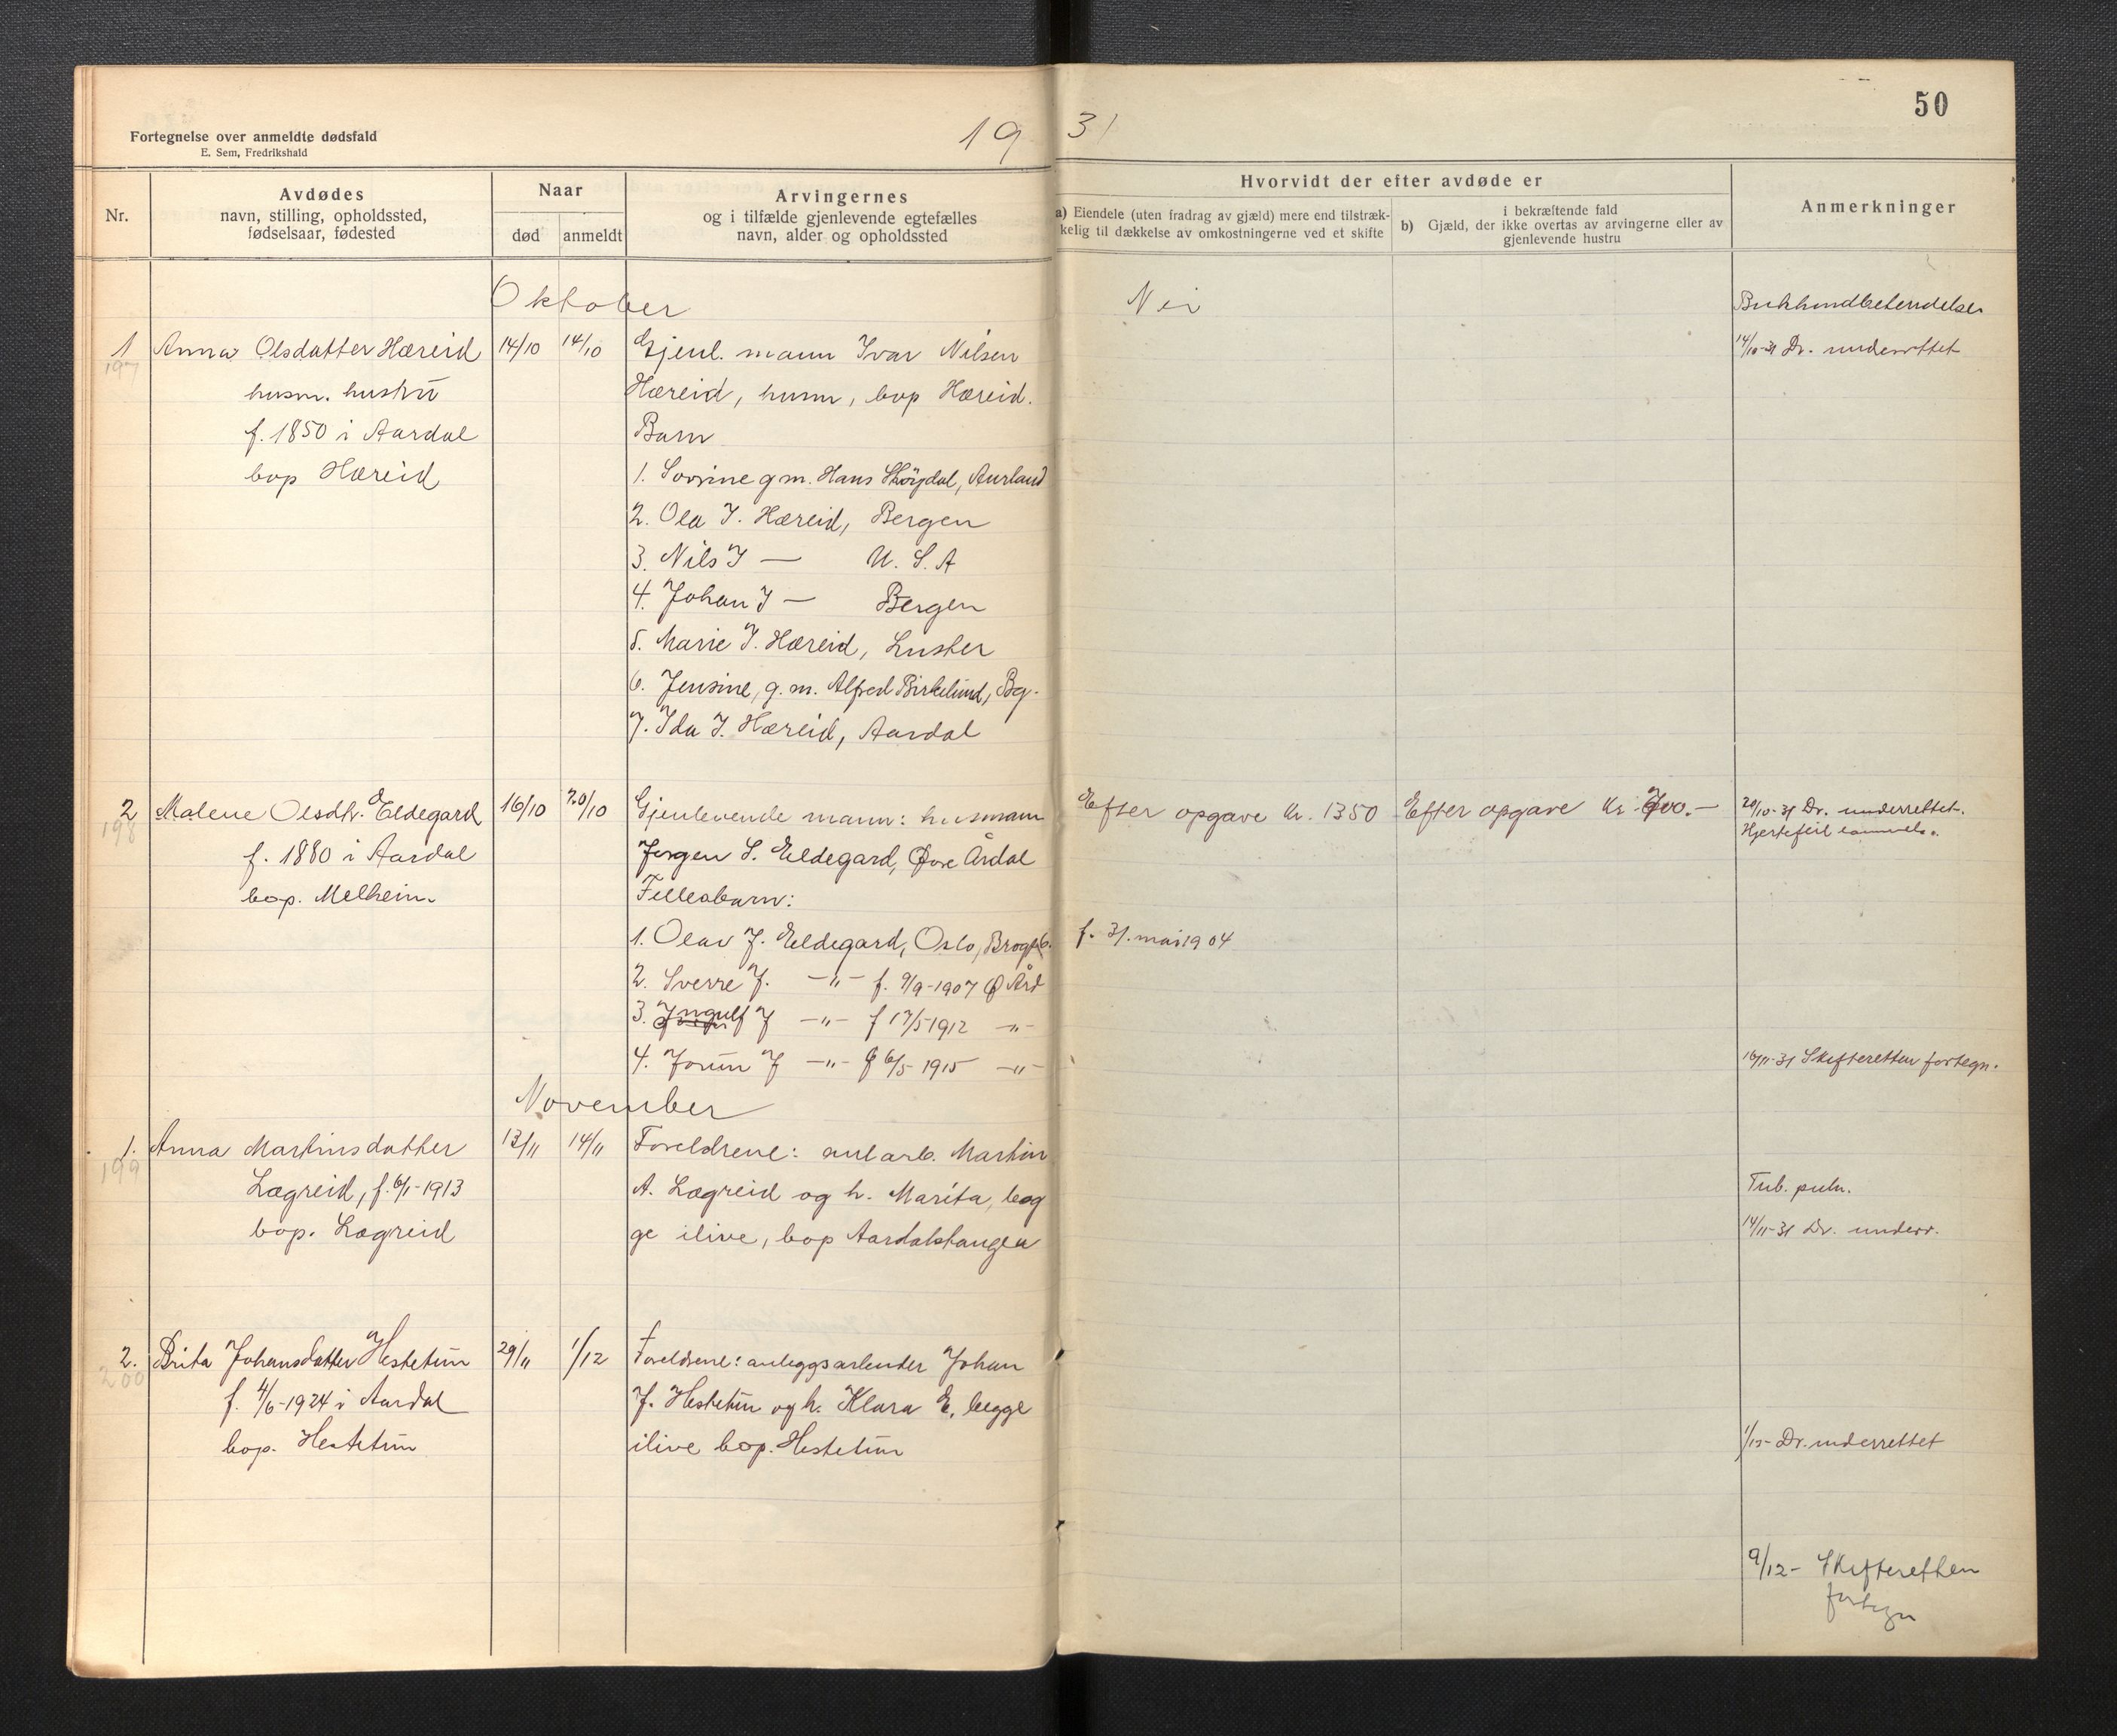 50
Fortegnelse over anmeldte dødsfald
E. Sem, Fredrikshald
19 31
Nr.
Avdødes
navn, stilling, opholdssted,
fødselsaar, fødested
Naar
død
anmeldt
Arvingernes
og i tilfælde gjenlevende egtefælles
navn, alder og opholdssted
Hvorvidt der efter avdøde er
a) Eiendele (uten fradrag av gjæld) mere end tilstræk-
kelig til dækkelse av omkostningerne ved et skifte
i bekræftende fald
b) Gjæld, der ikke overtas av arvingerne eller av
gjenlevende hustru
Anmerkninger
Oktober
1
197
Anna Olsdatter Hæreid
husm. hustru
f. 1850 i Aardal
bop Hæreid
14/10
14/10
Gjenl. mann Ivar Nilsen
Hæreid, husm, bop Hæreid.
Barn
1. Sorine g m. Hans Skörjdal, Aurland
2. Ola I. Hæreid, Bergen
3. Nils I — U. S. A
4. Johan I — Bergen
5. Marie I. Hæreid, Luster
6. Jensine, g. m. Alfred Birkelund, Bg.
7. Ida I. Hæreid, Aardal
Nei
14/10-31 Dr. underrettet
2
198
Malene Olsdtr. Eldegard
f. 1880 i Aardal
bop. Melheim.
16/10
20/10
Gjenlevende mann: husmann
Jørgen S. Eldegard, Øvre Årdal
Fellesbarn:
1. Olav J. Eldegard, Oslo,
f. 31. mai 1904
2. Sverre J. —"— f. 9/9-1907 Ø Ård
3. Ingulf J —"— f 17/5 1912 —"—
4. Jorun J —"— f 6/5 1915 —"—
Efter opgave kr. 1350
Efter opgave kr 700.—
20/10-31 Dr. underrettet.
Hjertefeil
16/11-31 Skifteretten fortegn.
November
1.
199
Anna Martinsdatter
Lægreid, f. 6/1-1913
bop. Lægreid
13/11
14/11
Foreldrene: anl arb. Martin
A. Lægreid og h. Marita, beg
ge ilive, bop Aardalstangen
Tub. pulm.
14/11-31 Dr. underr.
2.
200
Brita Johansdatter Hestetun
f. 4/6-1924 i Aardal
bop. Hestetun
29/11
1/12
Foreldrene: anleggsarbeider Johan
J. Hestetun og h. Klara E. begge
ilive bop. Hestetun
1/12- Dr. underrettet
9/12- Skifteretten
fortegn